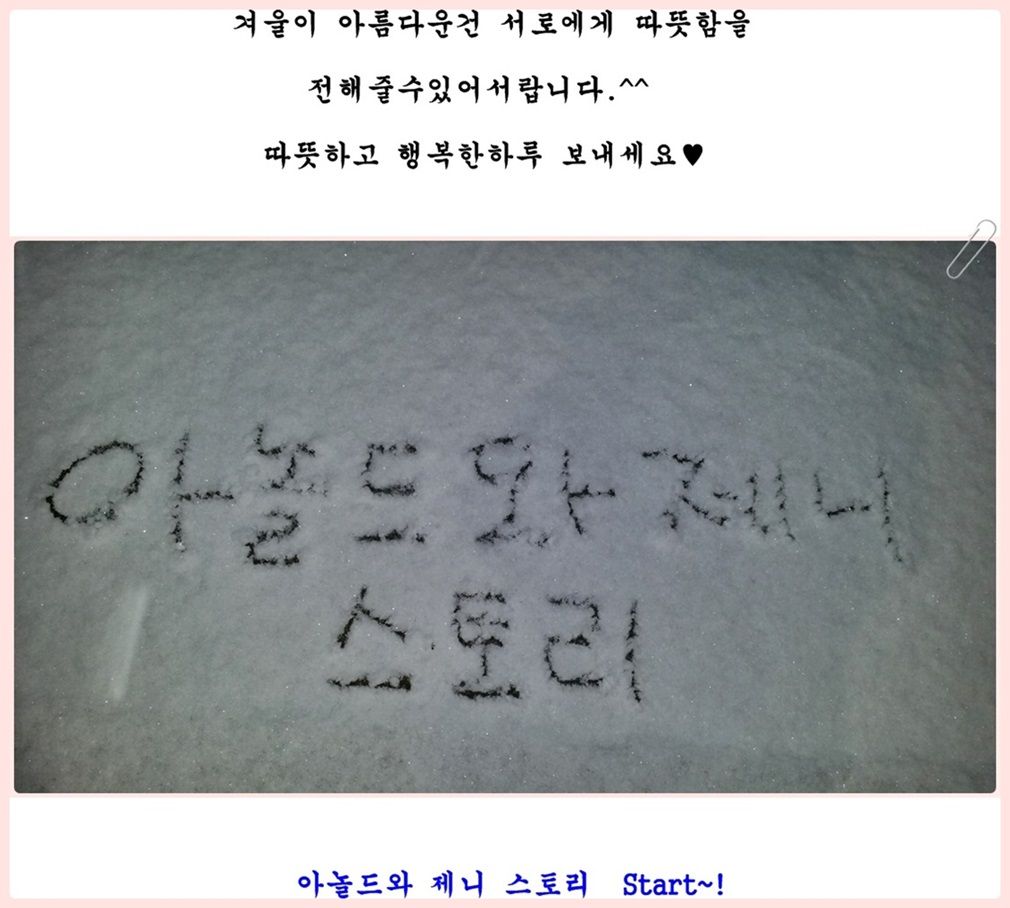 겨울이 아름다운건 서로에게 따뜻함을
전해줄수있어서랍니다.^^
따뜻하고 행복한하루 보내세요♥
아놀드와 제니
스토리
아놀드와 제니 스토리 Start~!